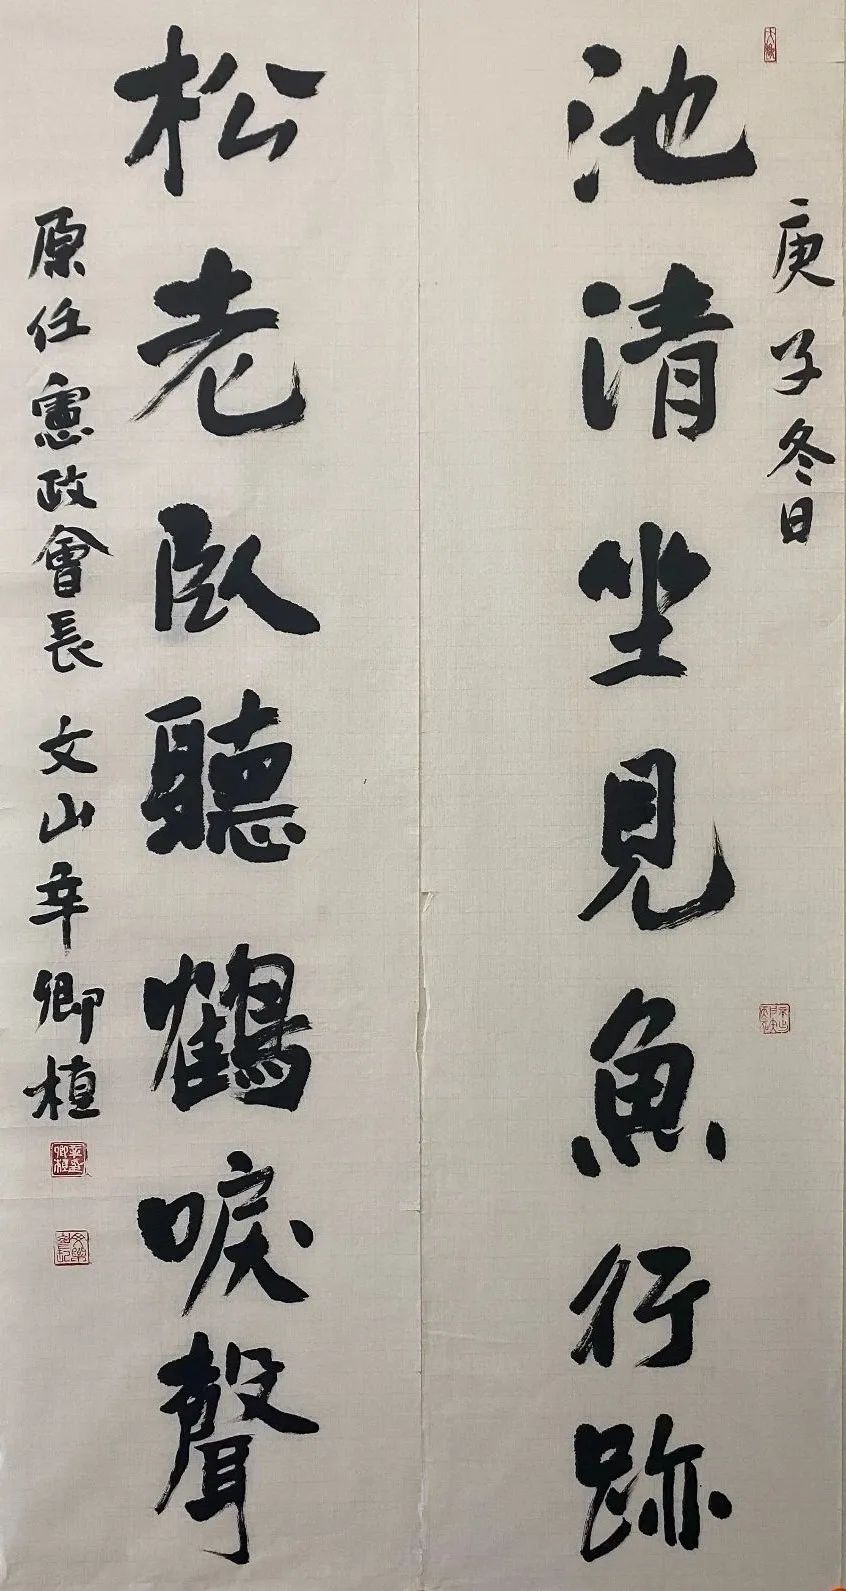 庚子冬日
池清坐見魚行跡
松老臥聽鶴唳聲
原任憲政會長 文山辛卿植